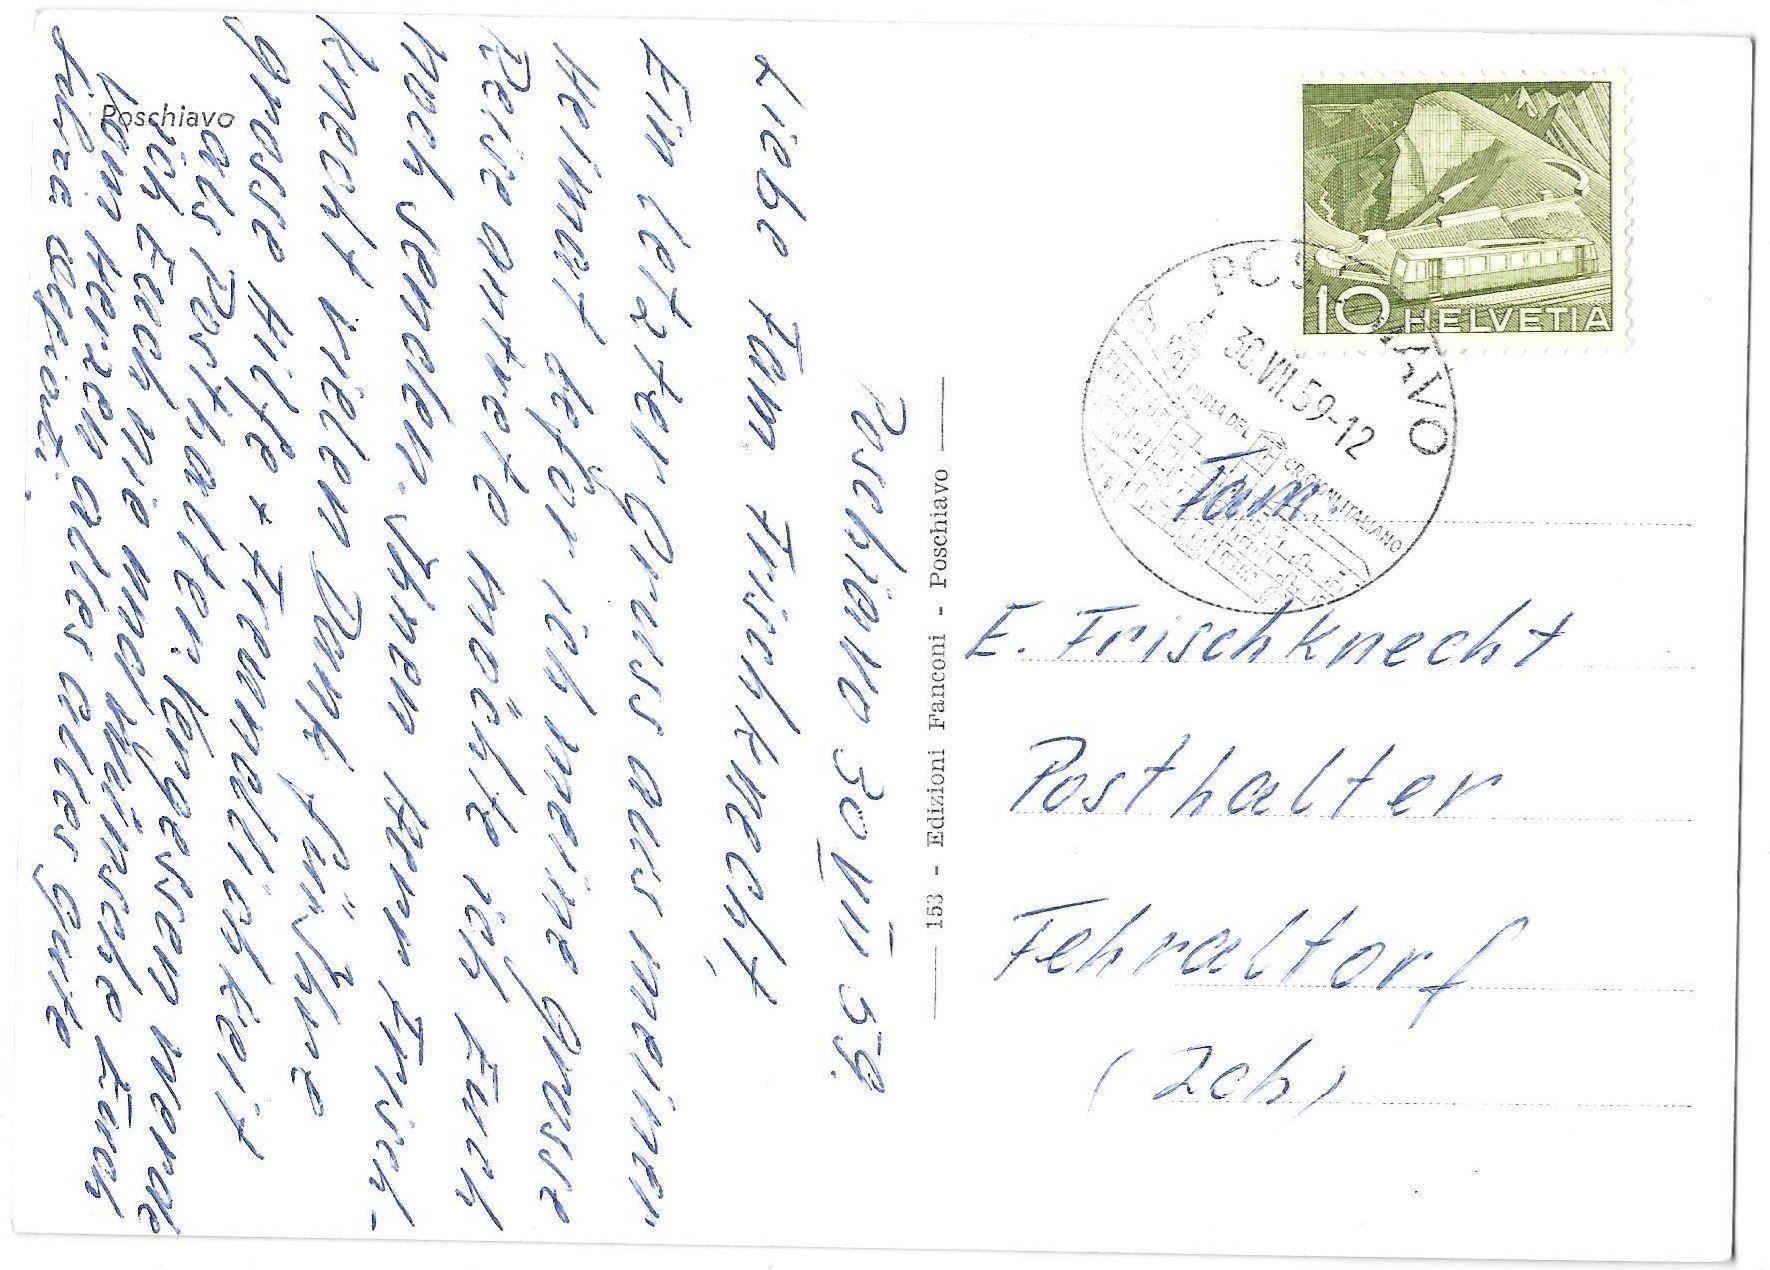 Poschiavo
Poschiavo 30 VII 59.
Liebe Fam. Frischknecht,
Ein letzter Gruss aus meiner
Heimat befor ich meine grosse
Reise antrete möchte ich Euch
noch senden. Ihnen Herr Frisch-
knecht vielen Dank für Ihre
grosse Hilfe + Freundlichkeit
als Posthalter. Vergessen werde
ich Euch nie und wünsche Euch
vom Herzen alles alles gute
153 - Edizioni Fanconi - Poschiavo
10 HELVETIA
POSCHIAVO
30.VII.59-12
PERLA DEL GRIGIONI ITALIANO
Fam.
E. Frischknecht
Posthalter
Fehraltorf
(Zch)